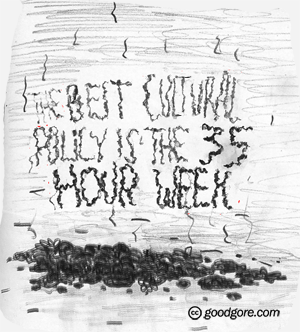 THE BEST CULTURAL
POLICY IS THE 35
HOUR WEEK
cc goodgore.com